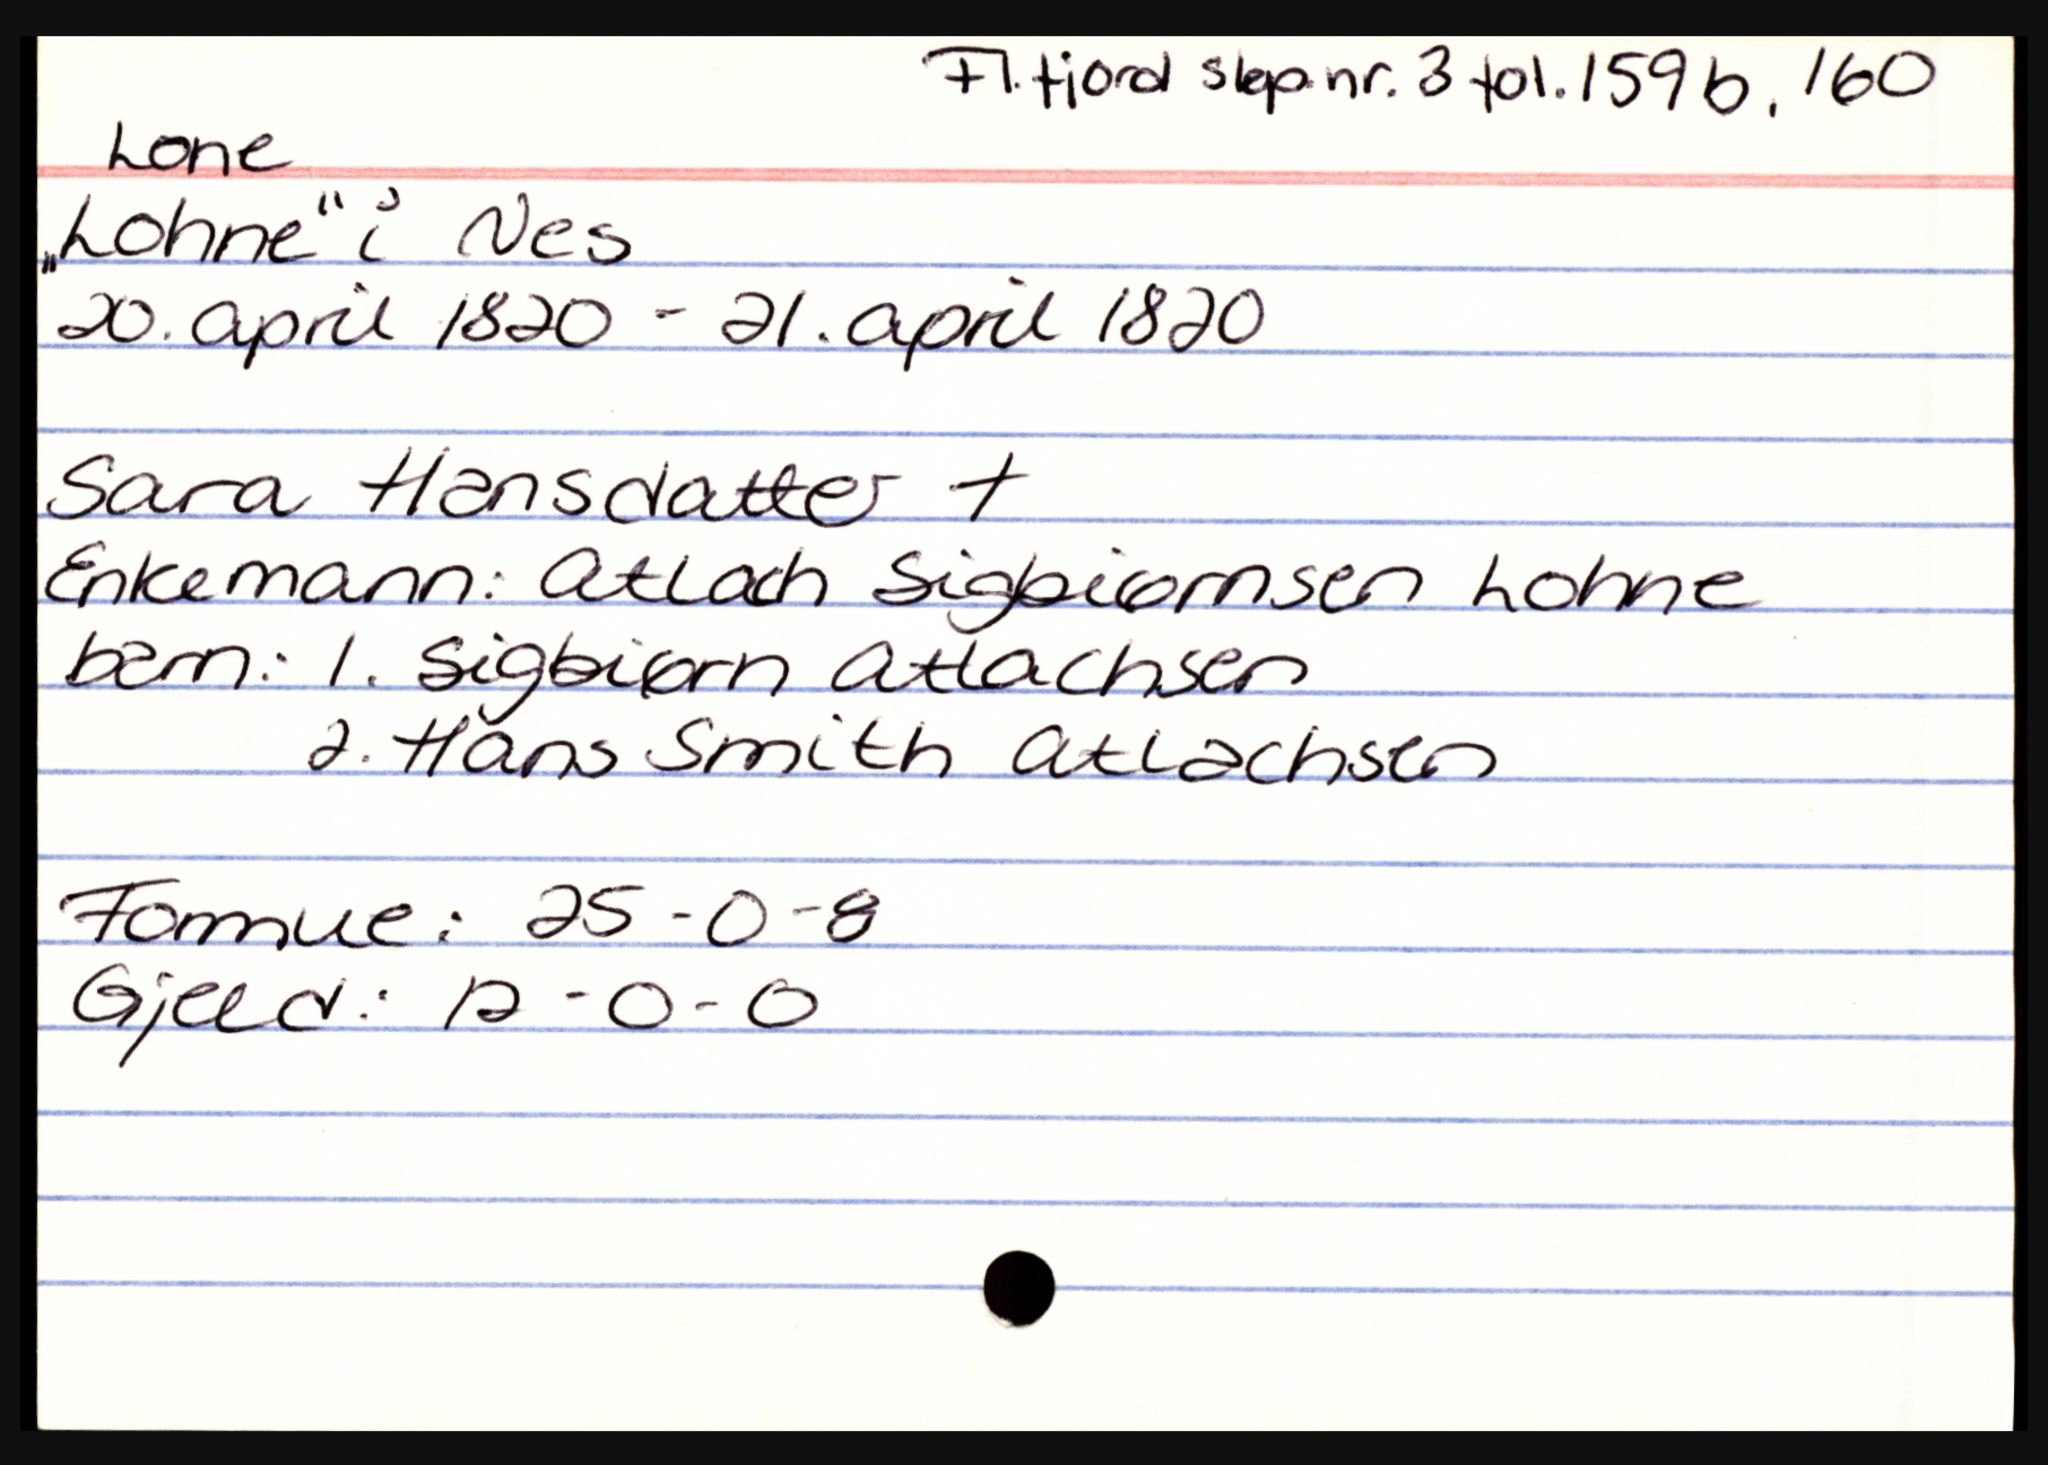 Fl.fjord skp.nr. 3 fol. 159b, 160
Lone
„Lohne“ i Nes
20. april 1820 - 21. april 1820
Sara Hansdatter +
Enkemann: Atlach Sigbiørnsen Lohne
barn: 1. Sigbiørn Atlachsen
2. Hans Smith Atlachsen
Formue: 25-0-8
Gjeld: 12-0-0